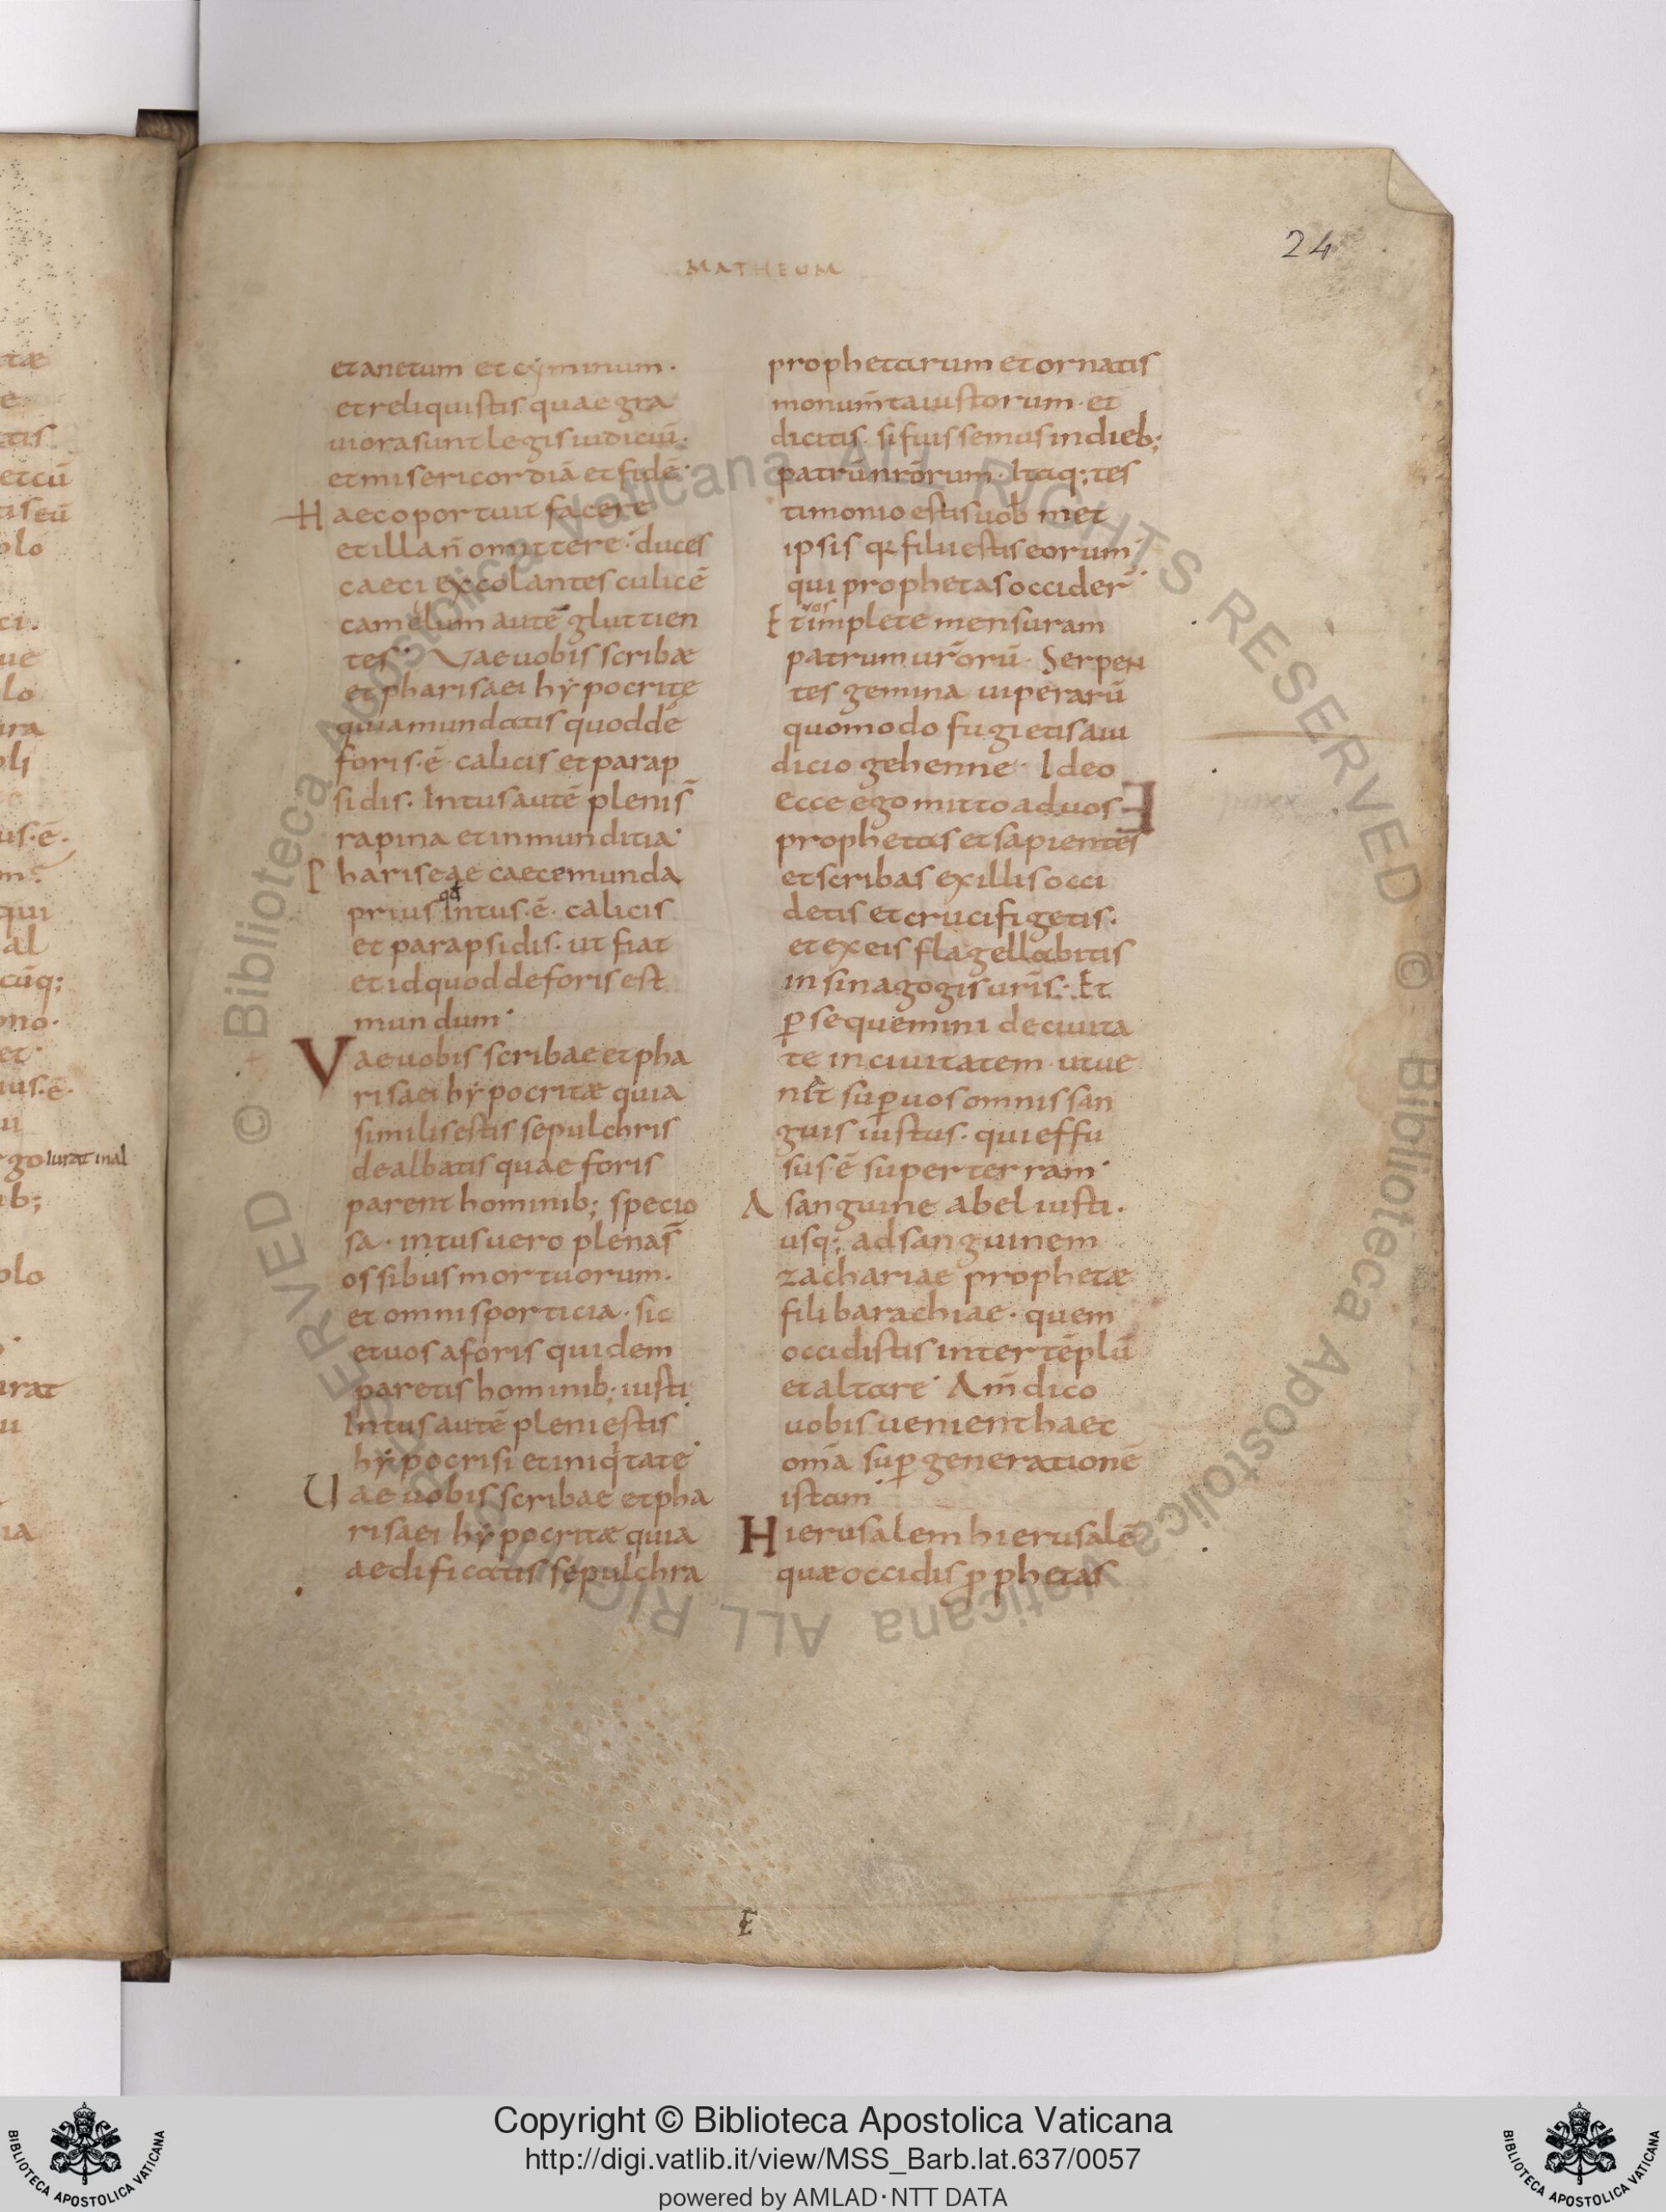 24
MATHEUM
et anetum et cyminum·
et reliquistis quae gra
uiora sunt legis iudiciū·
et misericordiā et fidē·
Haec oportuit facere
et illa ñ omittere· duces
caeci excolantes culicē
camelum autē gluttien
tes· Vae uobis scribæ
et pharisaei hypocritę
quia mundatis quod de
foris·ē· calicis et parap
sidis· Intus autē plenis̄
rapina et inmunditia·
Phariseae caece munda
prius qđ intus·ē· calicis
et parapsidis· ut fiat
et id quod deforis est
mundum·
Vae uobis scribae et pha
risaei hypocritæ quia
similis estis sepulchris
dealbatis quae foris
parent hominib; specio
sa· intus uero plena s̄
ossibus mortuorum·
et omni sporticia· sic
et uos a foris quidem
paretis hominib; iusti
Intus autē pleni estis
hypocrisi et iniqitate·
Uae uobis scribae et pha
risaei hypocritæ quia
aedificatis sepulchra
prophetarum et ornatis
monum̄ta iustorum· et
dicitis· si fuissemus in dieb;
patrū nr̄orum· Itaq; tes
timonio estis uob met
ipsis qr filii estis eorum·
qui prophetas occider̄·
Et uos implete mensuram
patrum ur̄orū· Serpen
tes gemina uiperarū
quomodo fugietis a iu
dicio gehenne· Ideo
ecce ego mitto ad uos
prophetas et sapientes
et scribas ex illis occi
detis et crucifigetis·
et ex eis flagellabitis
in sinagogis ur̄is· Et
ꝑsequemini de ciuita
te in ciuitatem· ut ue
niat suꝑ uos omnis san
guis iustus· qui effu
sus ē super terram·
A sanguine abel iusti·
usq; ad sanguinem
zachariae prophetæ
fili barachiae· quem
occidistis inter tēplū
et altare· Am̄ dico
uobis uenient haec
om̄a suꝑ generationē
istam
Hierusalem hierusalē
quæ occidis ꝓphetas
E
Copyright © Biblioteca Apostolica Vaticana
http://digi.vatlib.it/view/MSS_Barb.lat.637/0057
powered by AMLAD·NTT DATA